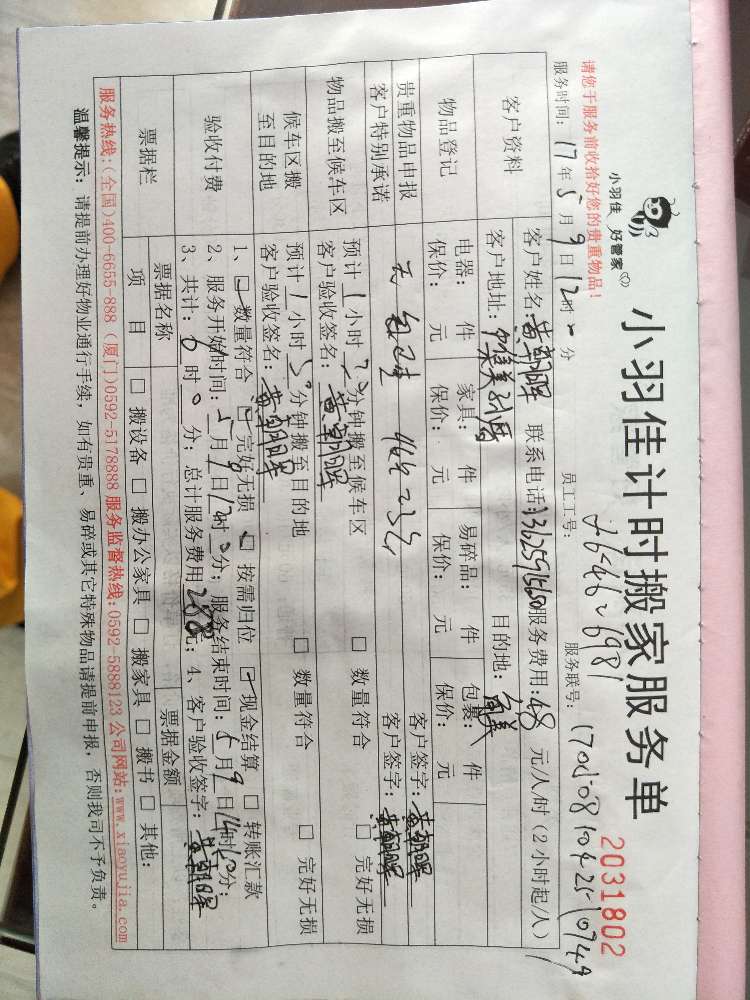 小羽佳 好管家
小羽佳计时搬家服务单
2031802
请您于服务前收拾好您的贵重物品！
员工工号：
服务联号：
服务时间：17年5月9日12时0分
客户资料
客户姓名：黄朝晖 联系电话：13625915650 服务费用：48元/人/时（2小时起/人）
客户地址：集美 目的地：集美
物品登记
电器： 件 家具： 件 易碎品： 件 包裹： 件
保价： 元 保价： 元 保价： 元 保价： 元
贵重物品申报 客户签字：黄朝晖
客户特别承诺 客户签字：黄朝晖
物品搬至候车区
预计1小时20分钟搬至候车区 □ 数量符合 □ 完好无损
客户验收签名：黄朝晖
候车区搬至目的地
预计1小时5分钟搬至目的地 □ 数量符合 □ 完好无损
客户验收签名：黄朝晖
验收付费
1、□ 数量符合 □ 完好无损 □ 按需归位 □ 现金结算 □ 转账汇款
2、服务开始时间：5月9日12时0分；服务结束时间：5月9日14时10分；
3、共计：时0分；总计服务费用288元；4、客户验收签字：黄朝晖
票据栏
票据名称 票据金额
项目 □ 搬设备 □ 搬办公家具 □ 搬家具 □ 搬书 □ 其他：
服务热线：(全国)400-6655-888 (厦门)0592-5178888 服务监督热线：0592-5888123 公司网站：www.xiaoyujia.com
温馨提示：请提前办理好物业通行手续，如有贵重、易碎或其它特殊物品请提前申报，否则我司不予负责。